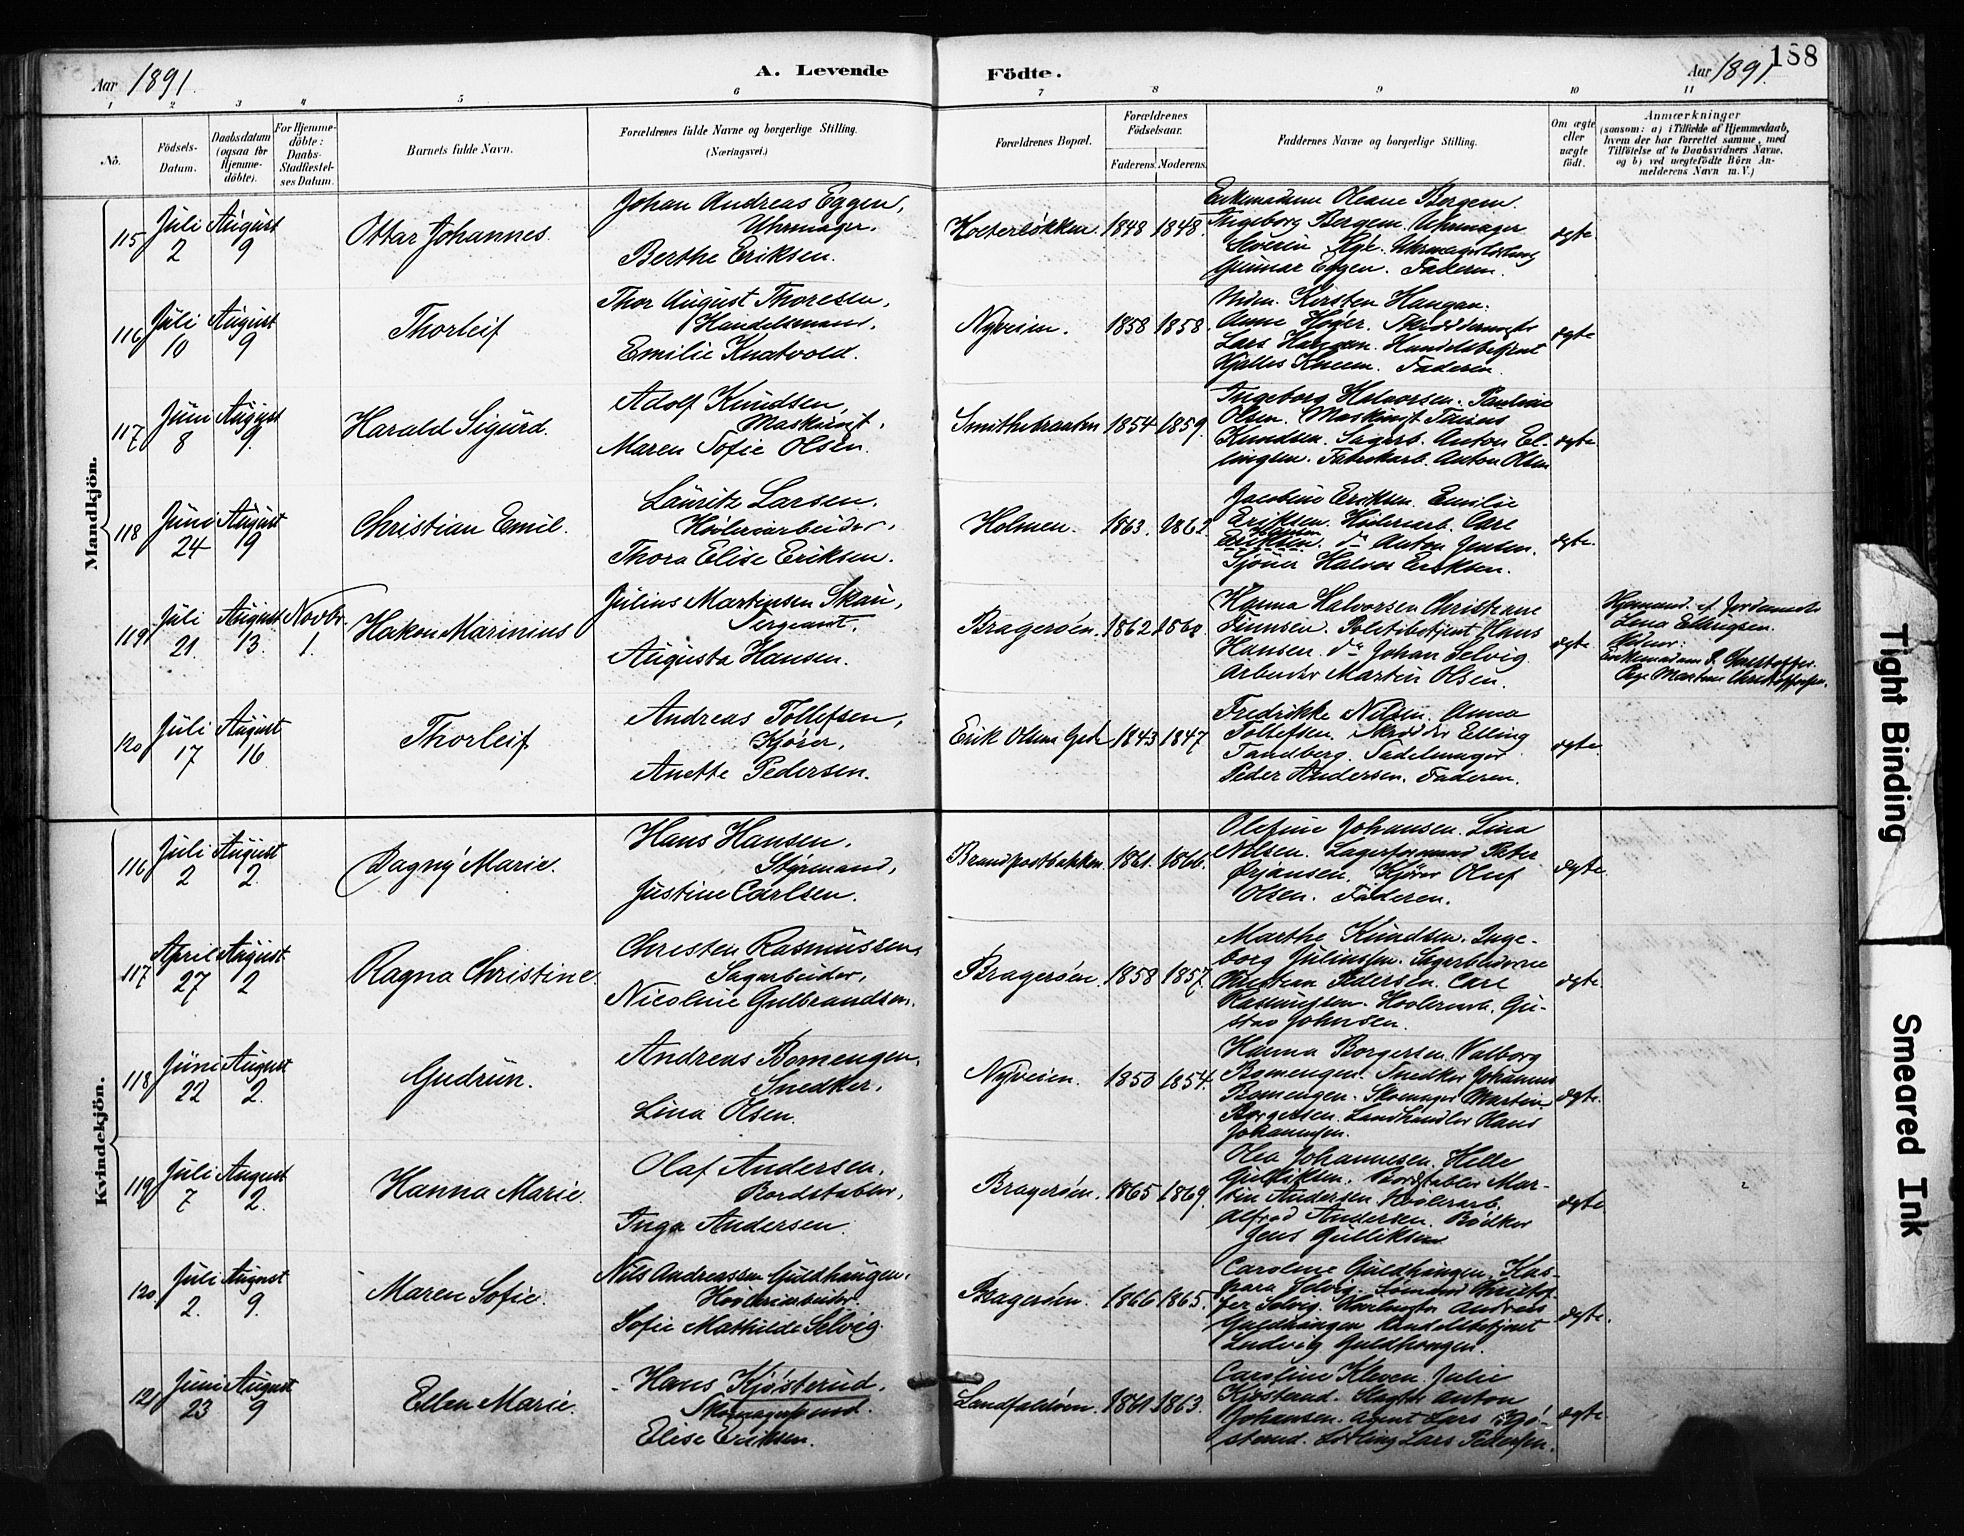 Aar 1891.
A. Levende
Födte.
Aar 1891.
188
1 2 3 4 5 6 7 8 9 10 11
No.
Födsels-Datum.
Daabsdatum (ogsaa for Hjemme-döbte).
For Hjemme-döbte: Daabs-Stadfæstel-ses Datum.
Barnets fulde Navn.
Forældrenes fulde Navne og borgerlige Stilling. (Næringsvei.)
Forældrenes Bopæl.
Forældrenes Födselsaar.
Faderens. Moderens.
Faddernes Navne og borgerlige Stilling.
Om ægte eller uægte födt.
Anmærkninger
(saasom: a) i Tilfælde af Hjemmedaab, hvem der har forrettet samme, med Tilföielse af to Daabsvidners Navne, og b) ved uægtefödte Börn An-melderens Navn m. V.)
Mandkjön.
115 Juli 2 August 9 Ottar Johannes.
Johan Andreas Eggen,
Uhrmager,
Berthe Eriksen.
1848 1848.
Enkemadam Oleane Bergem.
Ingeborg Bergem. Uhrmager
Gunnar Eggen. Faderen.
ægte.
116 Juli 10 August 9 Thorleif
Thor August Thoresen,
Handelsmand,
Emilie Knatvold.
Nyveien. 1858 1858
Kirsten Haugan.
Anne Høyer.
Lars Haugan. Handelsbetjent
Faderen.
ægte
117 Juni 8 August 9. Harald Sigurd.
Adolf Knudsen,
Maskinist,
Maren Sofie Olsen.
Smithebraaten 1854 1859.
Ingeborg Halvorsen. Pauline
Olsen. Maskinist
Knudsen. Sagarb. Anton El-
lingsen. Fabrikarb. Anton Olsen
ægte.
118 Juni 24 August 9 Christian Emil.
Lauritz Larsen,
Høvleriarbeider,
Thora Elise Eriksen.
Holmen. 1863. 1862.
Jacobine Eriksen. Emilie
Eriksen. Høvleriarb. Carl
Hansen
Eriksen. do Anton Jensen.
Halvor Eriksen.
ægte.
119 Juli 21. August 13. Novbr. 1. Hakon Marinius
Julius Martinsen Skau,
Sergeant,
Augusta Hansen.
Bragerøen. 1862
Hanna Halvorsen Christiane
Finnsen. Politibetjent Hans
Hansen. do Johan Selvig.
Arbeider Martin Olsen.
ægte.
Hjemmed. af Jordemoder
Lena Ellingsen.
Vidner:
120 Juli 17 August 16. Thorleif
Andreas Tollefsen,
Kjører,
Anette Pedersen.
Erik Olsens Gade 1843 1847
Fredrikke Nilsen. Anna
Tollefsen. Skrædder Elling
Tandberg. Sadelmager
Peder Andersen. Faderen.
ægte.
Kvindekjön.
116 Juli 2 August 2. Dagny Marie.
Hans Hansen,
Styrmand,
Justine Carlsen.
Brandpostbakken. 1861. 1866.
Olefine Johansen. Lina
Nilsen. Lagerformand Peter
Ørjansen. Kjører Oluf
Olsen. Faderen.
ægte.
117 April 27 August 2 Ragna Christine.
Christen Rasmussen,
Sagarbeider,
Nicoline Gulbrandsen.
Bragerøen. 1858 1857.
Marthe Knudsen. Inge-
borg Julinssen. Sagarbeiderne
Christian Pedersen. Carl
Rasmussen. Høvleriarb. Gu-
stav Johnsen.
ægte.
118 Juni 22 August 2. Gudrun.
Andreas Bomengen,
Snedker,
Lina Olsen.
Nyveien. 1850 1854.
Hanna Borgersen. Valborg
Bomengen. Snedker Johannes
Bomengen. Skomager Martin
Borgersen. Landhandler Hans
Johannesen.
ægte.
119 Juli 7 August 2. Hanna Marie.
Olaf Andersen,
Bordstabler,
Inga Andersen.
Bragerøen. 1865 1869.
Olea Johannesen. Helle
Gulliksen. Bordstabler Mar-
tin Andersen. Høvleriarb.
Alfred Andersen. Bødker
Jens Gulliksen
ægte.
120 Juli 2. August 9. Maren Sofie.
Nils Andreassen Guldhaugen,
Høvleriarbeider.
Sofie Mathilde Selvig.
Bragerøen. 1866 1865.
Caroline Guldhaugen. Kas-
para Selvig. Sømand Christof-
fer Selvig. Andreas
Guldhaugen. Handelsbetjent
Ludvig Guldhaugen.
ægte.
121 Juni 23 August 9 Ellen Marie.
Hans Kjøsterud,
Skomagersvend.
Elise Eriksen.
Landfaldøen. 1861 1863.
Caroline Kleven. Julie
Kjøsterud. Slagter Anton
Johansen. Agent Lars Kjø-
sterud. Lars Pedersen.
ægte.
Tight Binding
Smeared Ink